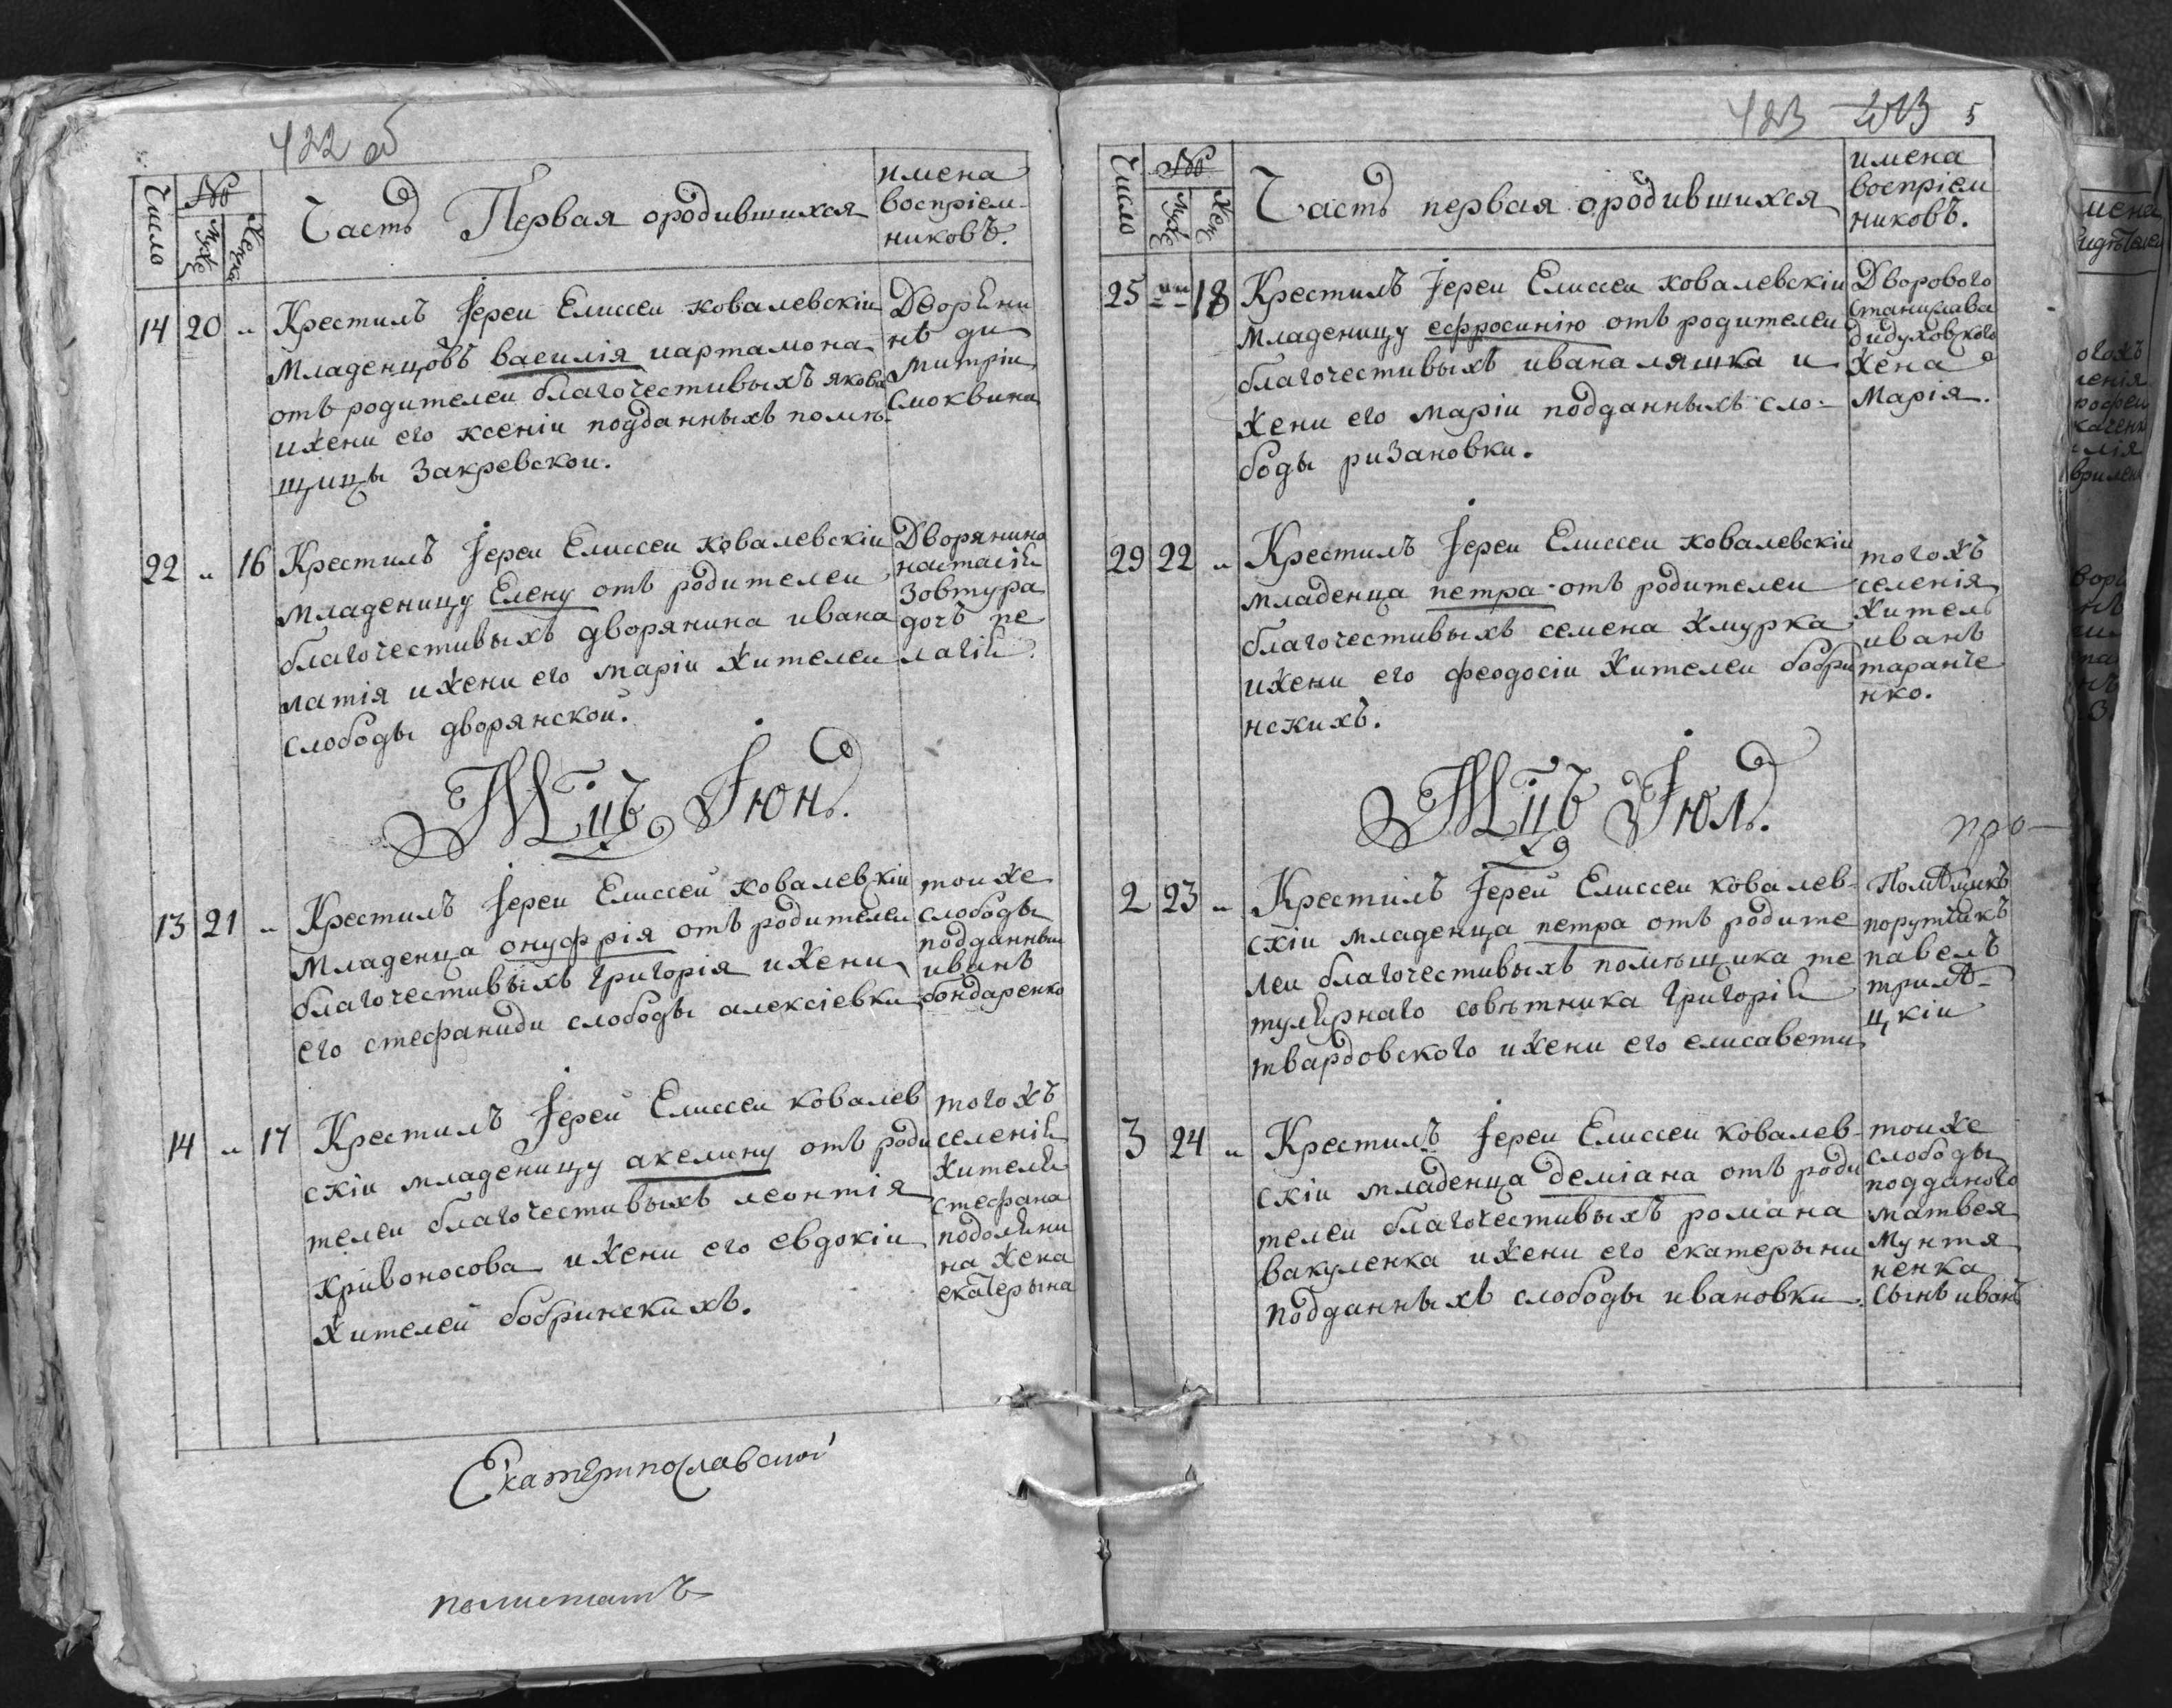 422 об
Число
№
муже
женска
Часть Первая ородившихся
имена
воспріем-
никовъ.
14 20 „ Крестилъ Іереи Елиссеи ковалевскіи
младенцовъ василія иартамона
отъ родителеи благочестивыхъ якова
ижени его ксеніи подданныхъ помѣ-
щицы Закревскои.
Дворяни
нъ ди
митріи
Смоквина
22 „ 16 Крестилъ Іереи Елиссеи ковалевскіи
младеницу Елену отъ родителеи
благочестивыхъ дворянина ивана
латія ижени его маріи жителеи
слободы дворянской.
Дворянина
настасія
Зовтура
дочъ пе
лагія
Мцъ Іюнь.
13 21 „ Крестилъ Іереи Елиссей ковалевскіи
младенца онуфрія отъ родителеи
благочестивыхъ григорія ижени
его стефаниди слободы алексіевки
тоиже
слободы
подданныи
иванъ
бондаренко
14 „ 17 Крестилъ Іерей Елиссеи ковалев
скіи младеницу акелину отъ роди
телеи благочестивыхъ леонтія
кривоносова ижени его евдокіи
жителей бобринскихъ.
тогожъ
селенія
жителя
стефана
подоляни
на жена
екатерына
Екатеринославской
полистамъ
423 213 5
Число
№
муже
жен
Часть первая ородившихся
имена
воспріем
никовъ.
25 „ 18 Крестилъ Іереи Елиссеи ковалевскіи
младеницу ефросинію отъ родителеи
благочестивыхъ ивана ляшка и
жени его маріи подданныхъ сло-
боды ризановки.
Дворового
станислава
дидуховского
жена
Марія.
29 22 „ Крестилъ Іереи Елиссеи ковалевскіи
младенца петра отъ родителеи
благочестивыхъ семена жмурка
ижени его феодосіи жителеи бобри
нскихъ.
тогожъ
селенія
житель
иванъ
таранче
нко.
Мцъ Іюль.
про-
2 23 „ Крестилъ Іерей Елиссеи ковалев-
скіи младенца петра отъ родите
леи благочестивыхъ помѣщика те
тулярнаго совѣтника григорія
твардовского ижени его елисавети
Помѣщикъ
порутчикъ
павелъ
трилѣ-
цкіи
3 24 „ Крестилъ Іереи Елиссеи ковалев-
скіи младенца деміана отъ роди
телеи благочестивыхъ романа
вакуленка ижени его екатерыни
подданныхъ слободы ивановки.
тоиже
слободы
подданого
матвея
мунтя
ненка
сынъ иванъ